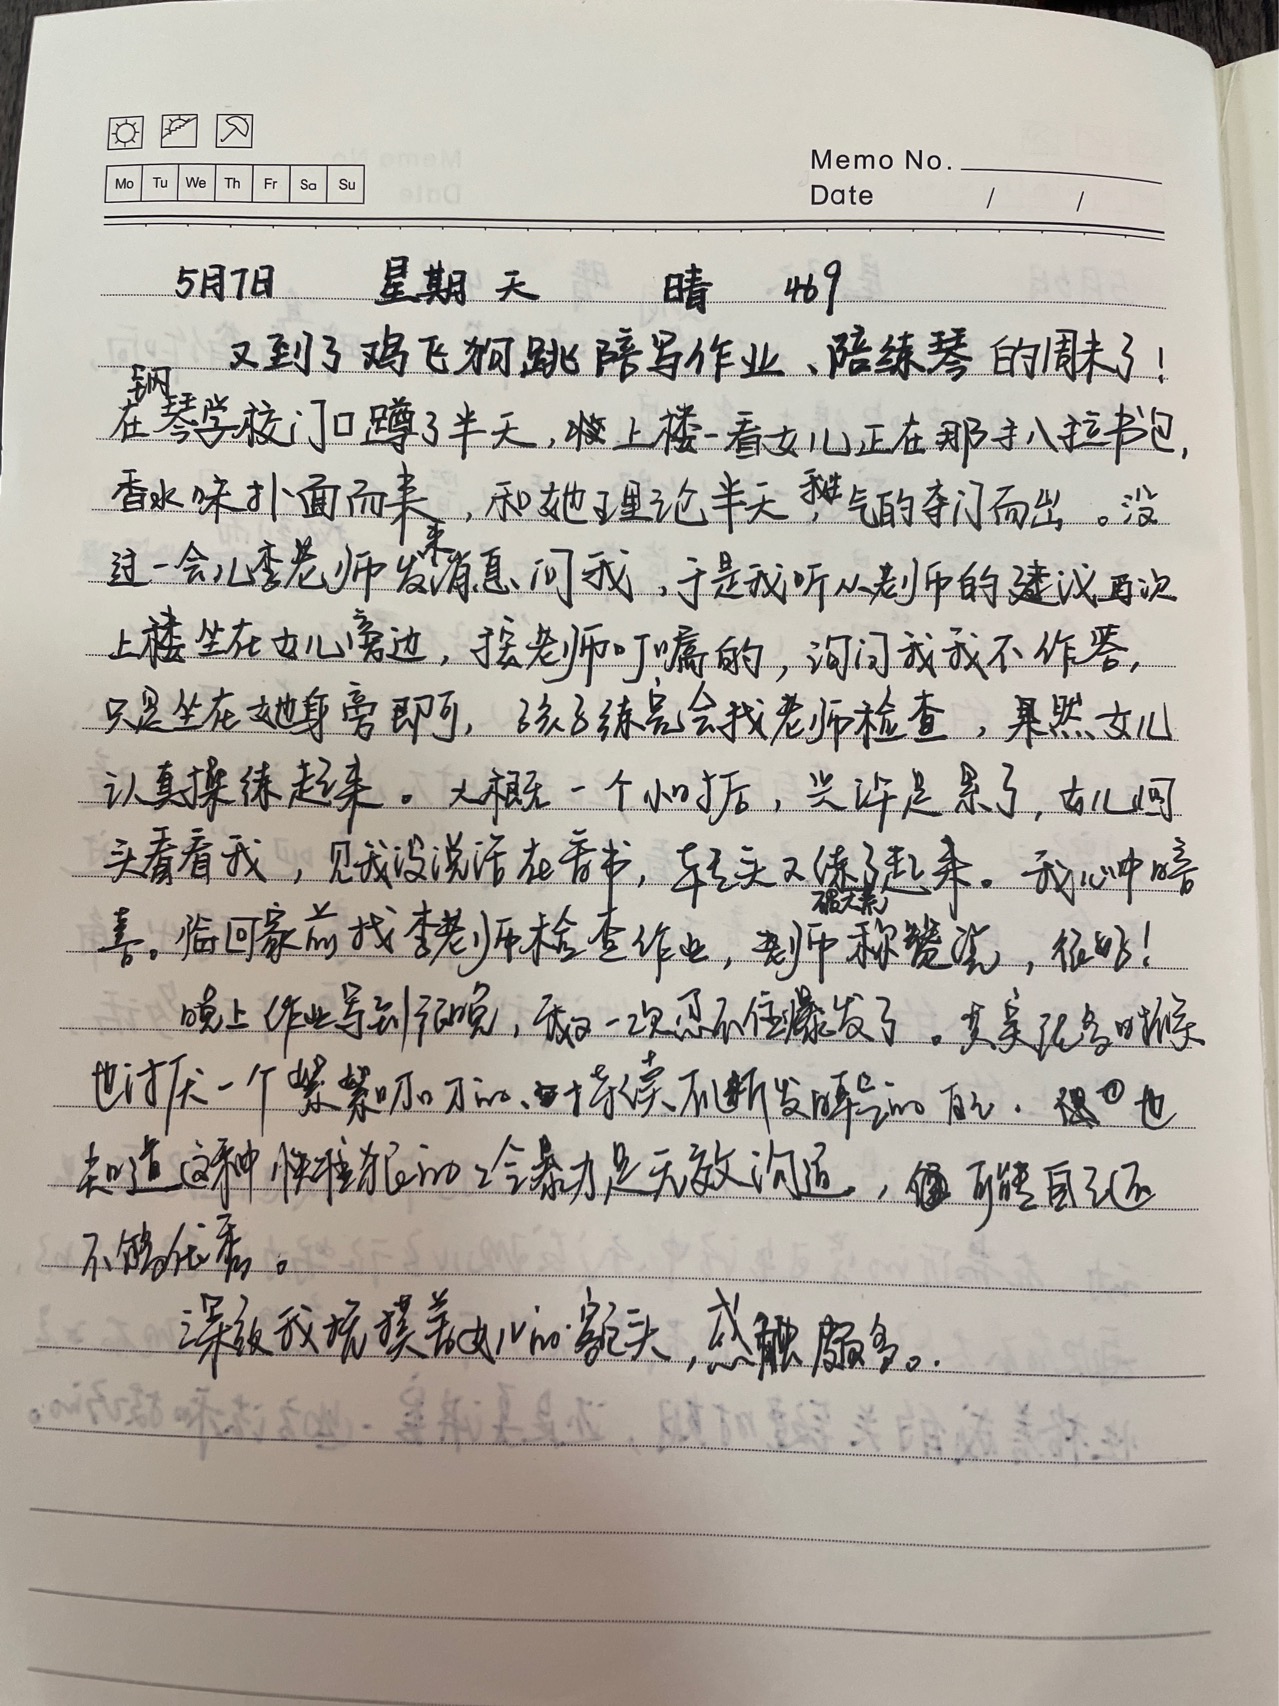 Mo Tu We Th Fr Sa Su
Memo No.
Date / /
5月7日 星期天 晴 469
又到了鸡飞狗跳陪写作业、陪练琴的周末了！
在钢琴学校门口蹲了半天，上楼一看女儿正在那手八拉书包，
香水味扑面而来，和她理论半天，我生气的夺门而出。没
过一会儿李老师发来消息问我，于是我听从老师的建议再次
上楼坐在女儿旁边，按老师叮嘱的，询问我我不作答，
只是坐在她身旁即可，孩子练完会找老师检查，果然女儿
认真操练起来。大概一个小时后，兴许是累了，女儿回
头看看我，见我没说话在看书，转头又练了起来。我心中暗
喜。临回家前找李老师检查作业，老师称赞，很好！
晚上作业写到很晚，我又一次忍不住爆发了。其实很多时候
也讨厌一个絮絮叨叨的、持续不断发牢骚的自己。但也
知道这种的冷暴力是无效沟通，但可能自己还
不够优秀。
深夜我抚摸着女儿的额头，感触颇多。